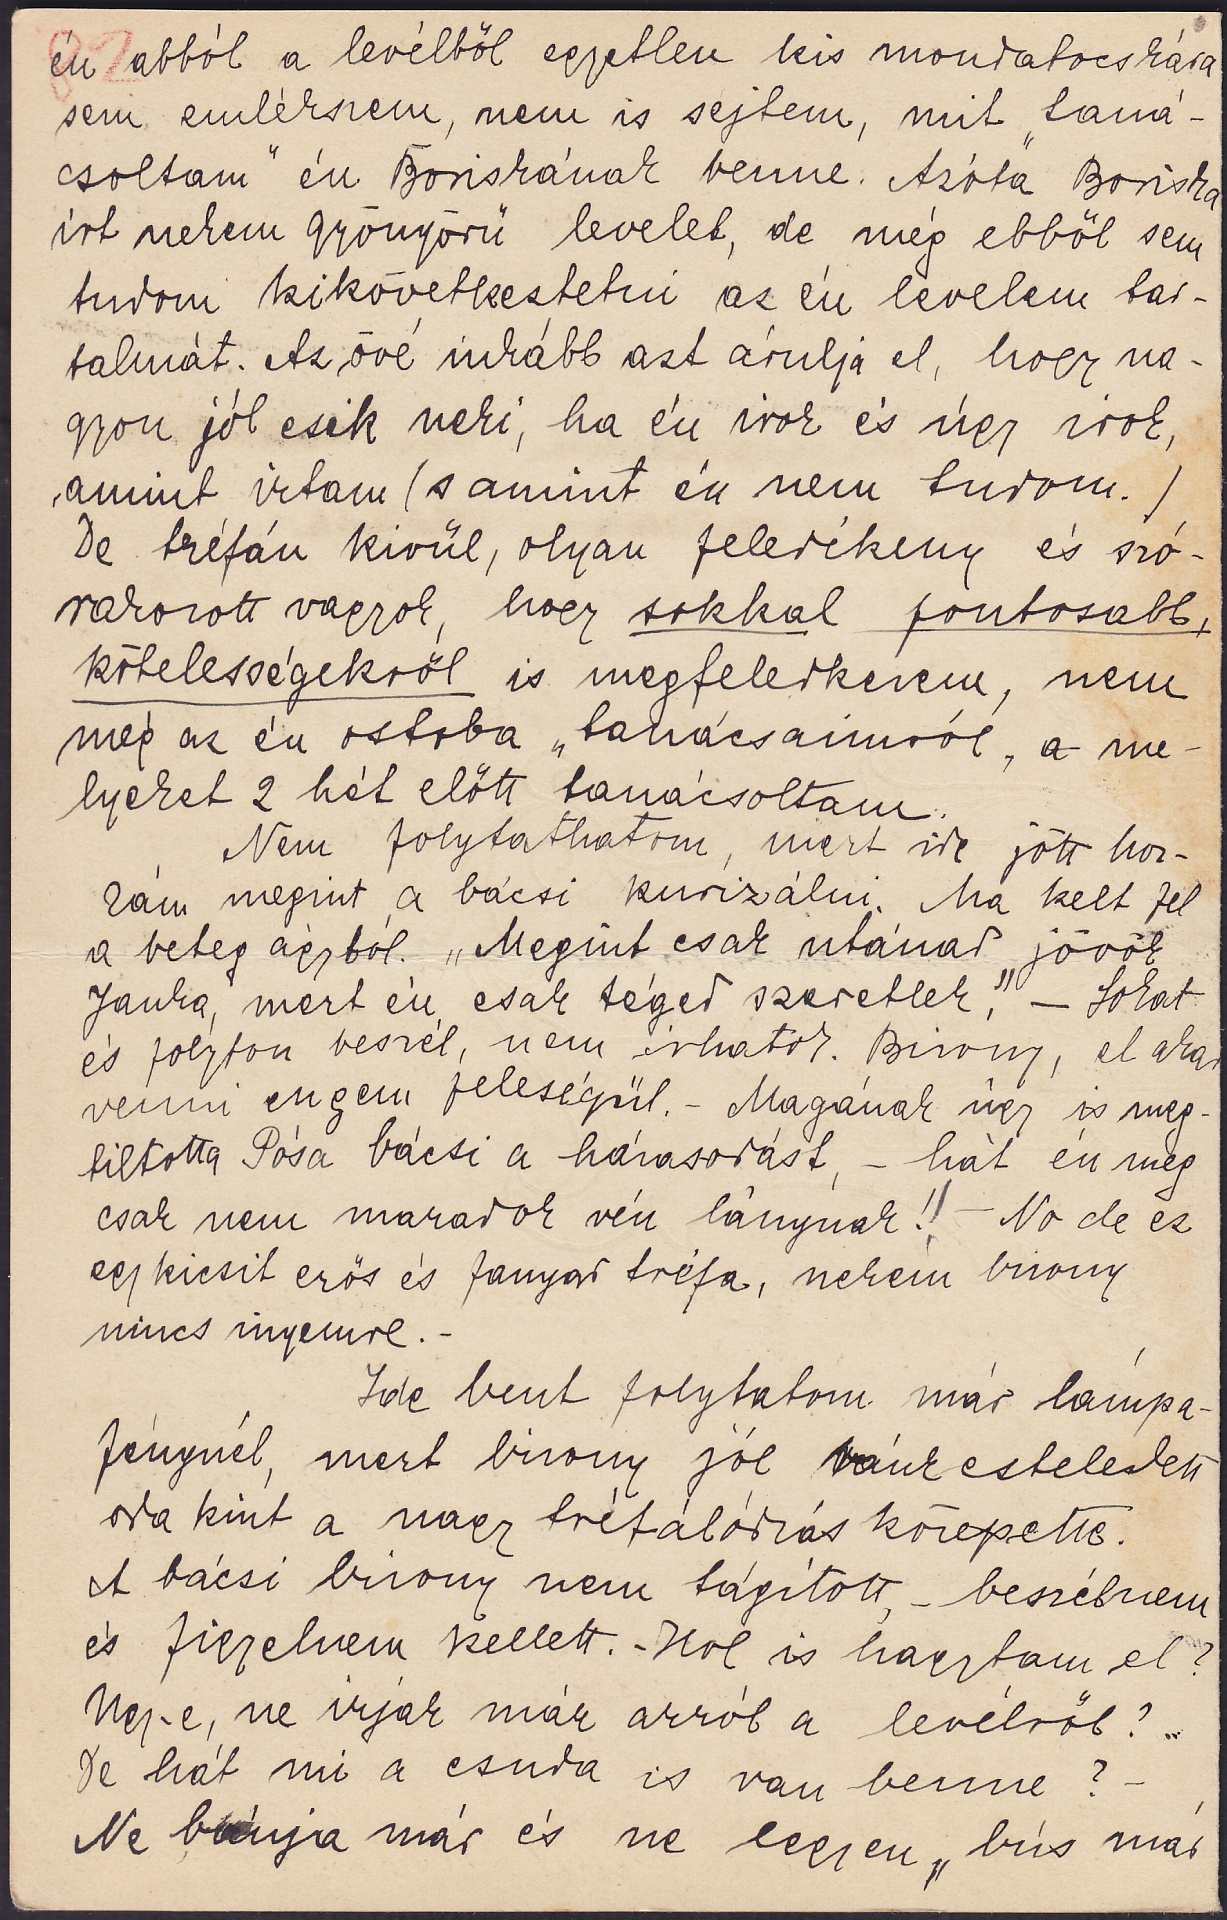 82
én abból a levélből egyetlen kis mondatocskára
sem emlékszem, nem is sejtem, mit „taná-
csoltam" én Boriskának benne. Azóta Boriska
irt nekem gyönyörű levelet, de még ebből sem
tudom kikövetkeztetni az én levelem tar-
talmát. Az övé inkább azt árulja el, hogy na-
gyon jól esik neki, ha én irok és úgy irok,
amint irtam (s amint én nem tudom.)
De tréfán kivül, olyan feledékeny és szó-
rakozott vagyok, hogy sokkal fontosabb,
kötelességekről is megfeledkezem, nem
még az én ostoba „tanácsaimról, a me-
lyeket 2 hét előtt tanácsoltam.
Nem folytathatom, mert ide jött hoz-
zám megint a bácsi kurizálni. Ma kelt fel
a beteg ágyból. „Megint csak utánad jövök
Janka, mert én csak téged szeretlek." – Sokat
és folyton beszél, nem irhatok. Bizony, el akar
venni engem feleségül. – Magának úgy is meg-
tiltotta Pósa bácsi a házasodást, – hát én meg
csak nem maradok vén lánynak!! – No de ez
egy kicsit erős és fanyar tréfa, nekem bizony
nincs inyemre. –
Ide bent folytatom már lámpa-
fénynél, mert bizony jól ránk esteledett
oda kint a nagy tréfálódzás közepette.
A bácsi bizony nem tágított, – beszélnem
és figyelnem kellett. – Hol is hagytam el?
Ugy-e, ne irjak már arról a levélről? ..
De hát mi a csuda is van benne? –
Ne bánja már és ne legyen „bús már